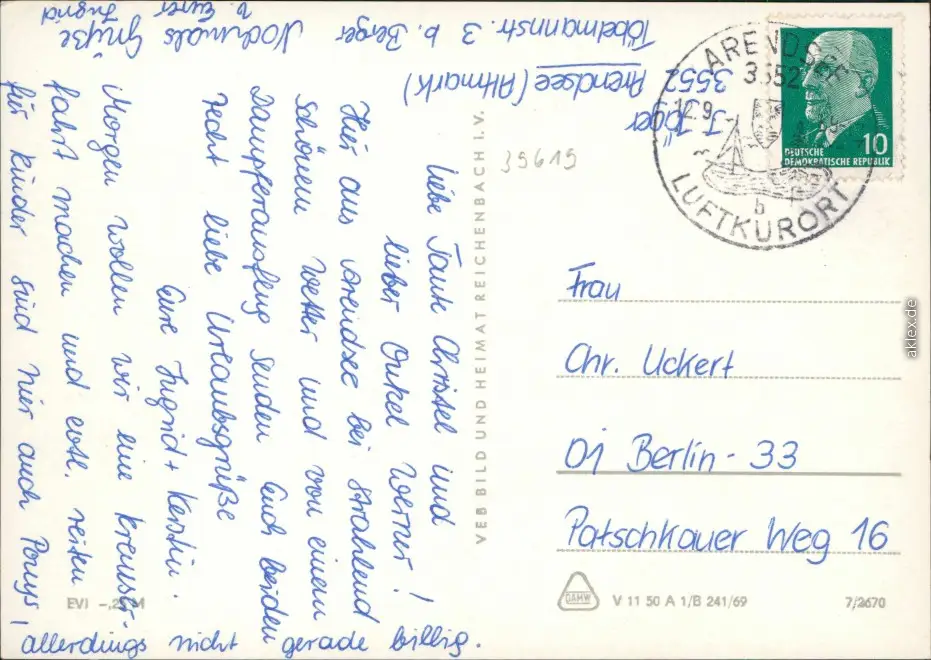 Liebe Tante Christel und
lieber Onkel Werner!
Hier aus Arendsee bei strahlend
schönem Wetter und von einem
Dampferausflug senden Euch beiden
recht liebe Urlaubsgrüße
Eure Ingrid + Kerstin.
Morgen wollen wir eine Kremser-
fahrt machen und evtl. reiten
für Kinder sind hier auch Ponys,
allerdings nicht gerade billig.
Nochmals Grüße
v. Eurer
Ingrid
J. Jäger
3552 Arendsee (Altmark)
Töbelmannstr. 3 b. Berger
39619
VEB BILD UND HEIMAT REICHENBACH I. V.
ARENDSEE
3552
12.9
b
LUFTKURORT
10
DEUTSCHE
DEMOKRATISCHE REPUBLIK
Frau
Chr. Uckert
01 Berlin - 33
Patschkauer Weg 16
EVP -,25 M
DAMW
V 11 50 A 1/B 241/69
7/2670
aklex.de